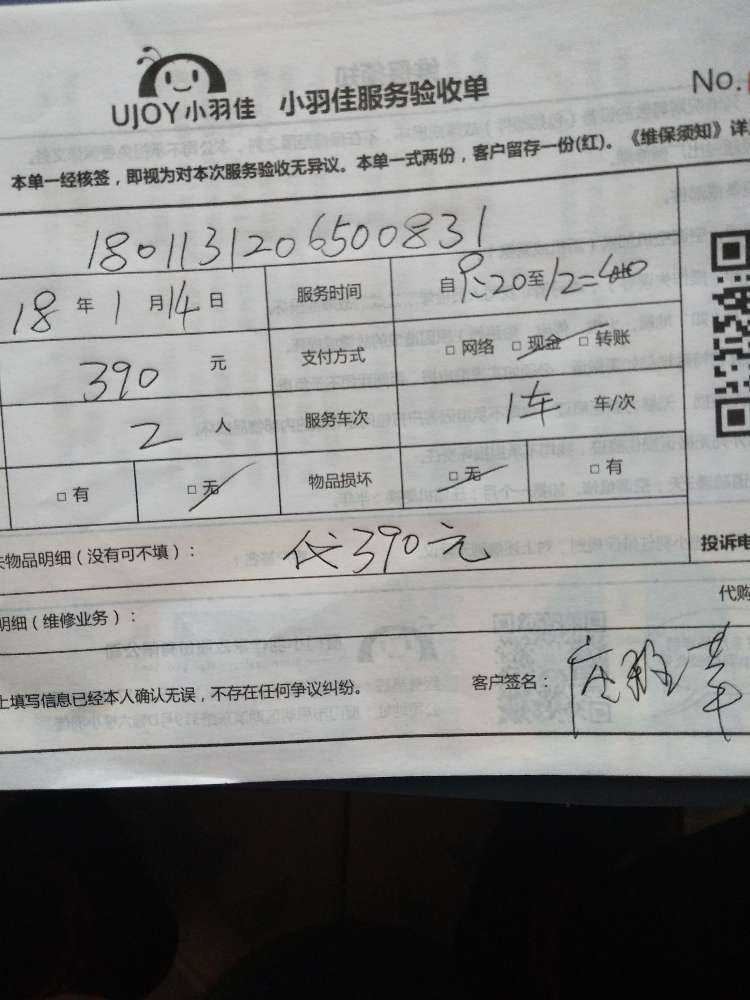 UJOY小羽佳 小羽佳服务验收单 No.
本单一经核签，即视为对本次服务验收无异议。本单一式两份，客户留存一份(红)。《维保须知》详
1801131206500831
18 年 1 月 14 日 服务时间 自 9:20 至 12:00
390 元 支付方式 □ 网络 □ 现金 □ 转账
2 人 服务车次 1车 车/次
□ 有 □ 无 物品损坏 □ 无 □ 有
物品明细（没有可不填）： 390元 投诉电
明细（维修业务）： 代购
上填写信息已经本人确认无误，不存在任何争议纠纷。 客户签名：